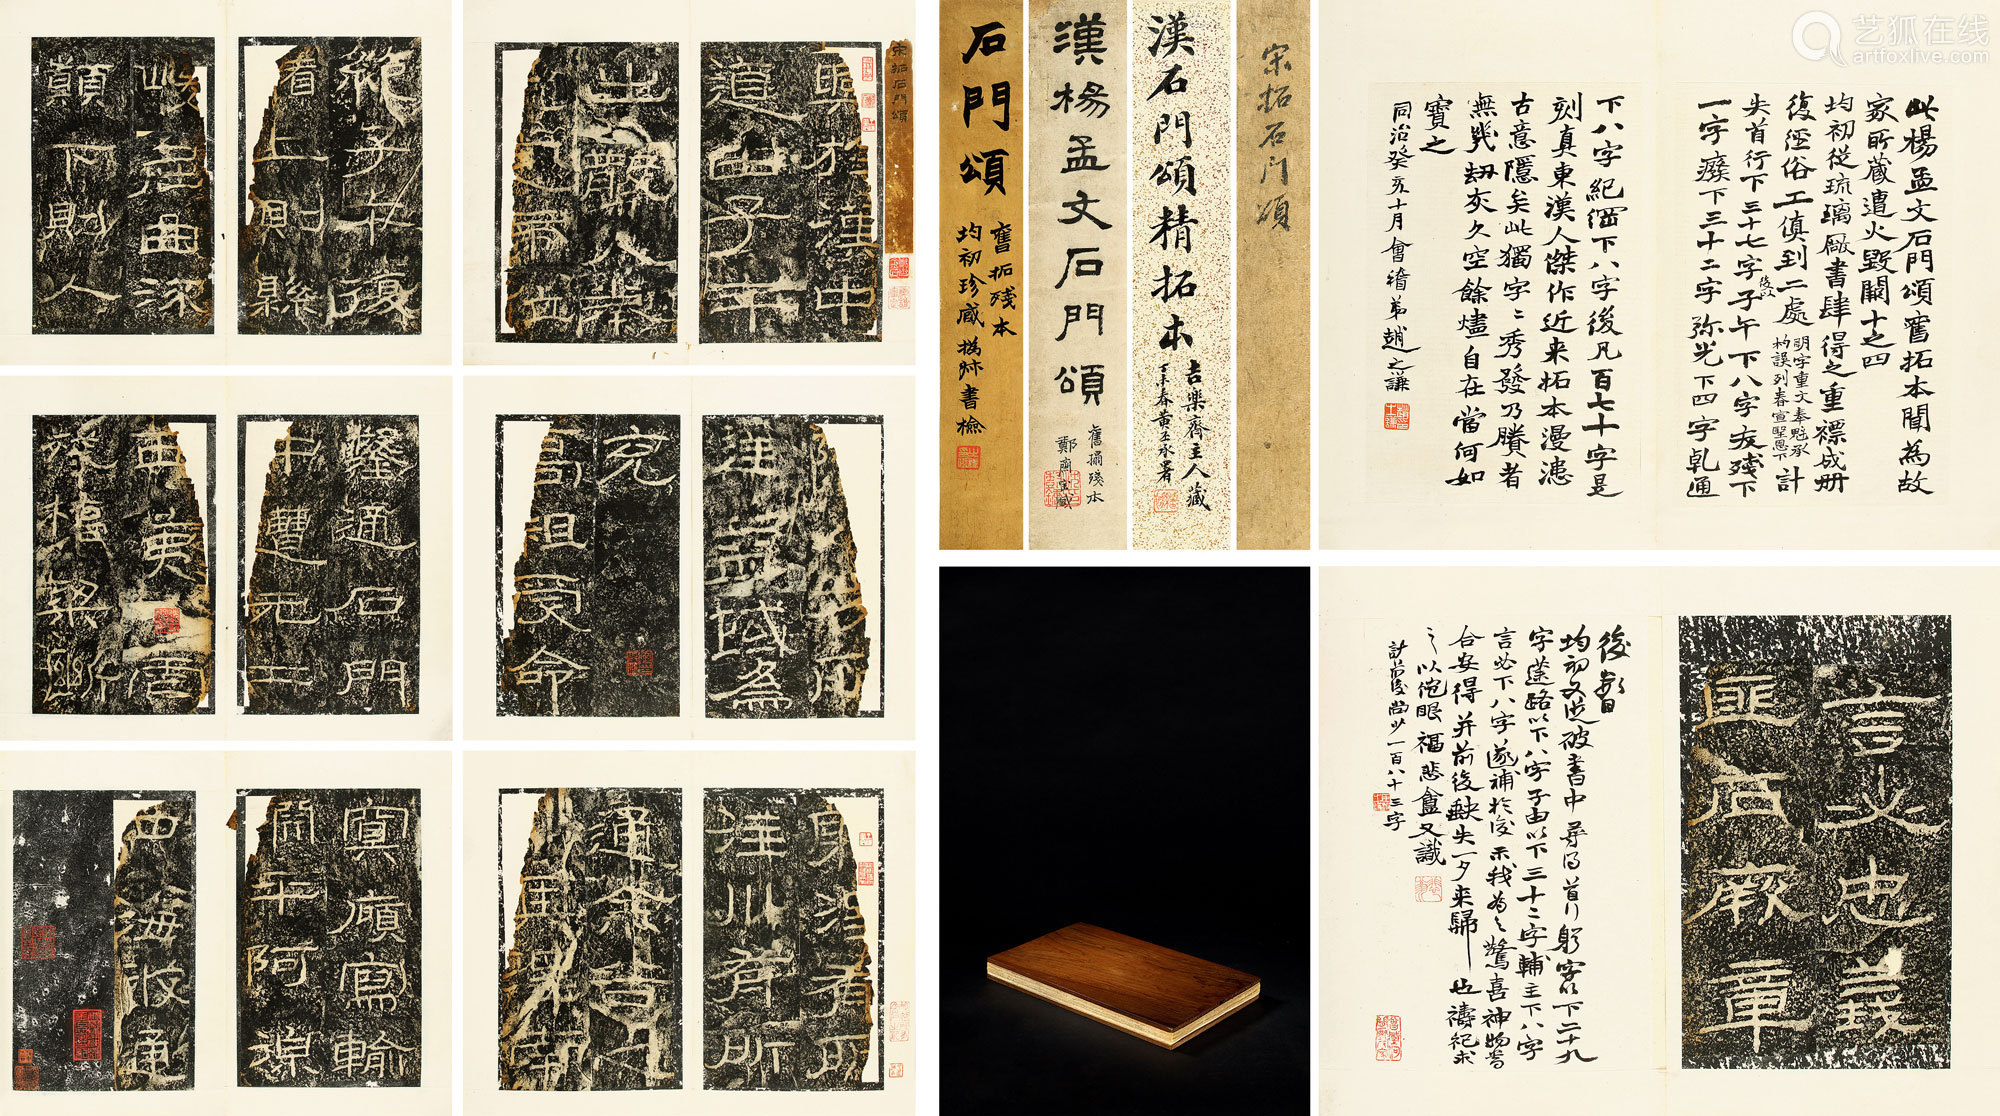 絕子午復
循上則縣
峻屈曲流
顛下則入
宋拓石門頌
興於漢中
道由子午
出散入秦
建定帝位
鑿通石門
中遭元二
西夷虐
殘橋梁斷
達益域為
充
高祖受命
冥傾寫輸
淵平阿湶
四海攸通
躬澤有所
注川有所
通余谷之
川其澤南
宋拓石門頌
漢石門頌精拓本
吉樂齋主人藏
丁未春黃丕承署
漢楊孟文石門頌
舊搨殘本
鄭齋宝臧
石門頌
舊拓殘本
均初珍臧撝叔書檢
此楊孟文石門頌舊拓本聞為故
家所藏遭火毀闕十之四
均初從琉璃廠書肆得之重褾成册
復經俗工傎到二處明字重文奉魁承杓誤列春宣聖恩下計
失首行下三十七字後以子午下八字友殘下
一字癈下三十二字弥光下四字軋通
下八字紀綱下八字後凡百七十字是
刻真東漢人傑作近来拓本漫漶
古意隱矣此獨字〻秀發乃賸者
無幾劫灰久空餘燼自在當何如
寶之
同治癸亥十月會稽弟趙之謙
言必忠義
匪石厥章
後數日
均初又從破書中尋得首行躬字以下二十九
字蓬路以下八字子由以下三十二字輔主下八字
言必下八字遂補於後示我為之驚喜神物焉
合安得并前後缺失一夕来歸也禱祀求
之以俟眼福悲盦又識
計前後尚少一百八十三字
艺狐在线
artfoxlive.com